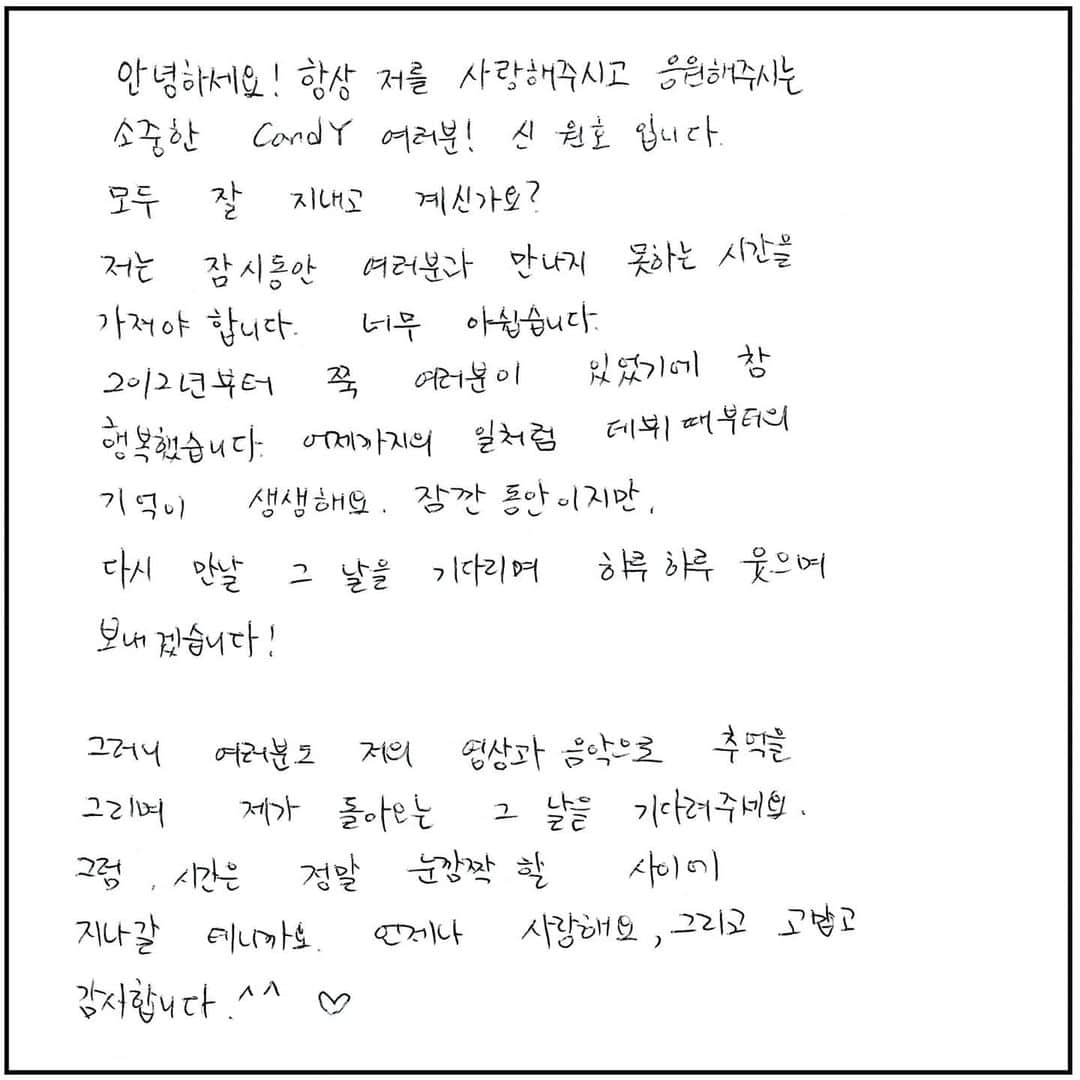 안녕하세요! 항상 저를 사랑해주시고 응원해주시는
소중한 CandY 여러분! 신 원호 입니다.
모두 잘 지내고 계신가요?
저는 잠시동안 여러분과 만나지 못하는 시간을
가져야 합니다. 너무 아쉽습니다.
2012년부터 쭉 여러분이 있었기에 참
행복했습니다. 어제까지의 일처럼 데뷔 때부터의
기억이 생생해요. 잠깐 동안이지만,
다시 만날 그 날을 기다리며 하루 하루 웃으며
보내겠습니다!
그러니 여러분도 저의 영상과 음악으로 추억을
그리며 제가 돌아오는 그 날을 기다려주세요.
그럼, 시간은 정말 눈깜짝 할 사이에
지나갈 테니까요. 언제나 사랑해요, 그리고 고맙고
감사합니다.^^ ♡